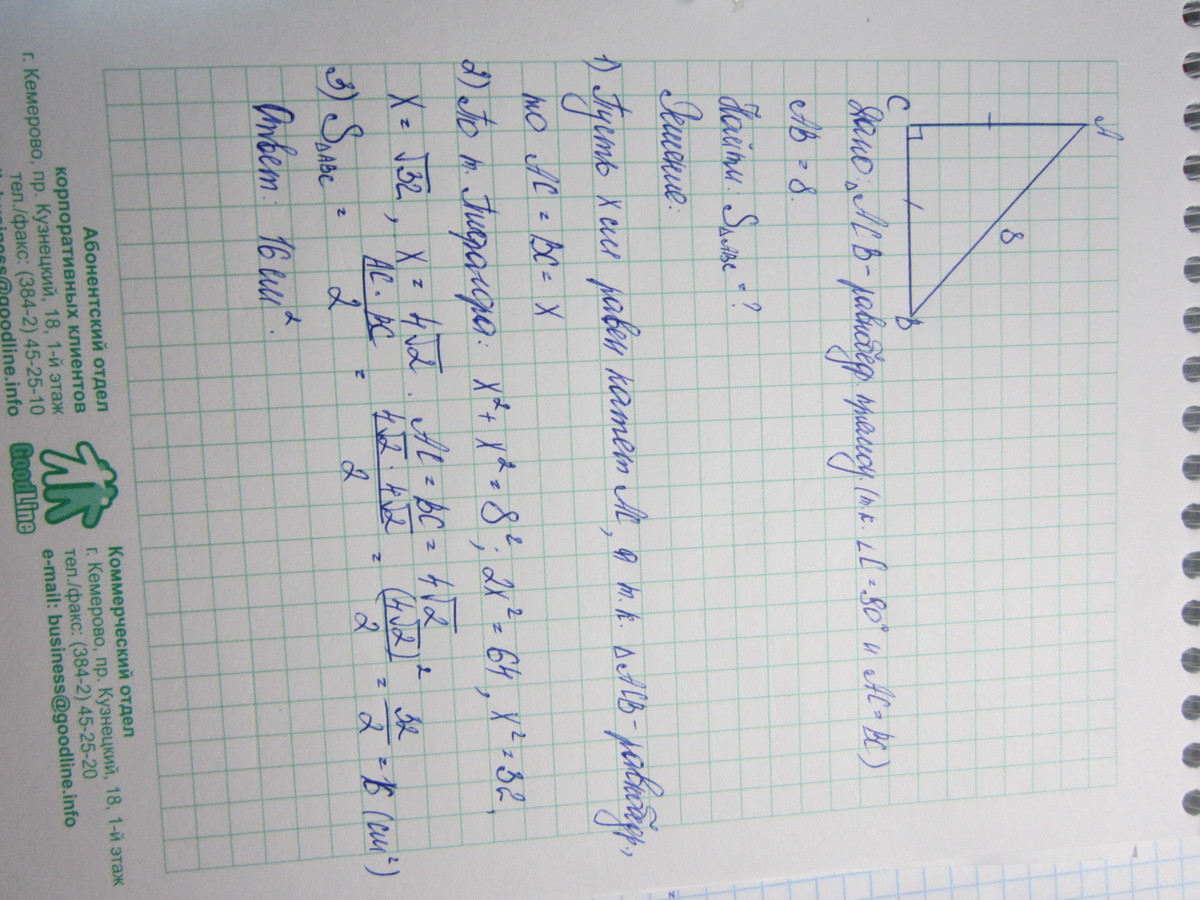 A
8
C
B
Дано: △ACB - равнобедр. прямоу. (т.к. ∠C = 90° и AC = BC)
AB = 8.
Найти: S△ABC = ?
Решение:
1) Пусть x см равен катет AC, а т.к. △ACB - равнобедр.,
то AC = BC = x
2) По т. Пифагора: x² + x² = 8²; 2x² = 64, x² = 32,
x = √32, x = 4√2. AC = BC = 4√2
3) S△ABC = AC · BC / 2 = 4√2 · 4√2 / 2 = (4√2)² / 2 = 32 / 2 = 16 (см²)
Ответ: 16 см².
Абонентский отдел
корпоративных клиентов
г. Кемерово, пр. Кузнецкий, 18, 1-й этаж
тел./факс: (384-2) 45-25-10
business@goodline.info
GoodLine
Коммерческий отдел
г. Кемерово, пр. Кузнецкий, 18, 1-й этаж
тел./факс: (384-2) 45-25-20
e-mail: business@goodline.info